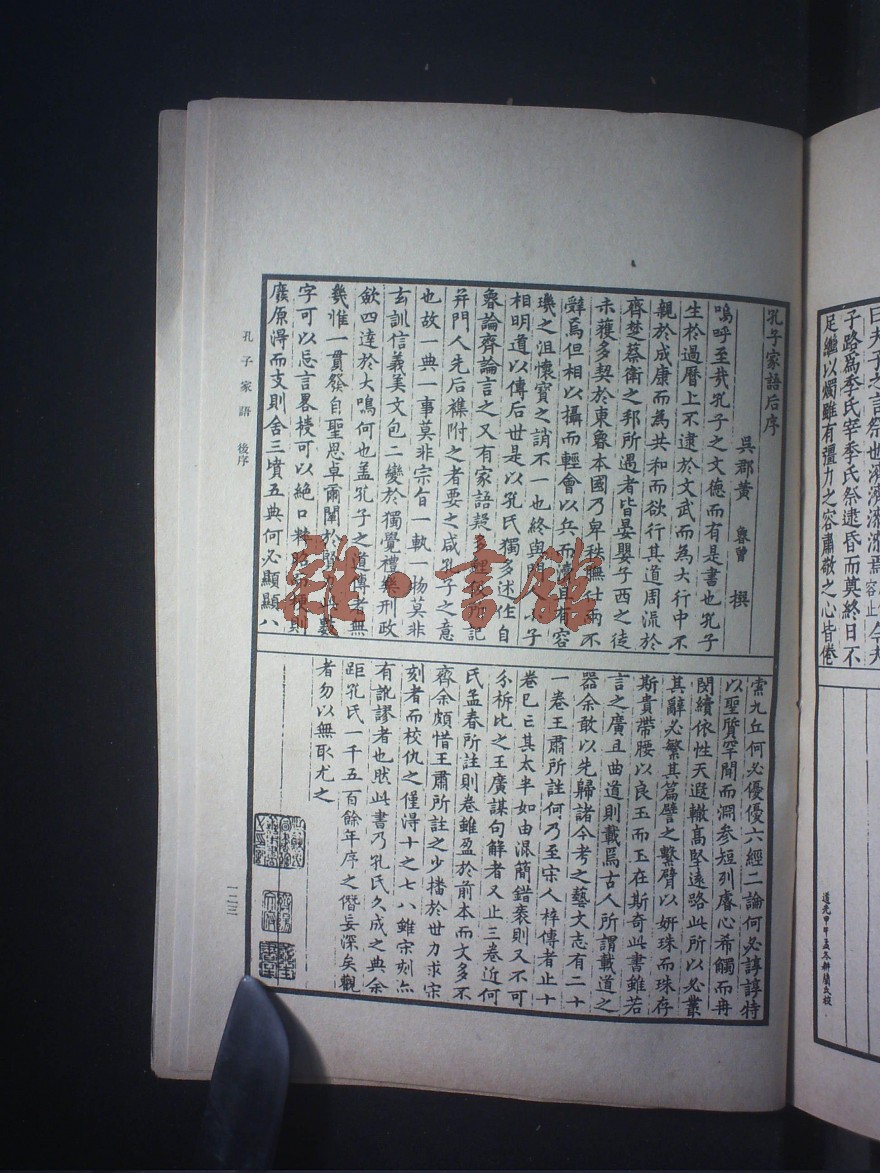 曰夫子之言祭也濟濟漆漆焉
子路為季氏宰季氏祭逮昏而莫終日不
足繼以燭雖有彊力之容肅敬之心皆倦
道光甲午孟冬
孔子家語后序
吳郡黃魯曾撰
嗚呼至哉孔子之文德而有是書也孔子
生於過曆上不逮於文武而為大行中不
親於成康而為共和而欲行其道周流於
齊楚蔡衛之邦所遇者皆晏嬰子西之徒
未獲多契於東魯本國乃卑秩膴仕而不
舜焉但相以攝而輕會以兵而
璣之沮懷寶之誚不一也終與門人小子
相明道以傳后世是以孔氏獨多述作自
魯論齊論言之又有家語疑多
并門人先后襍附之者要之咸孔子之意
也故一典一事莫非宗旨一執一物莫非
玄訓信義美文包二變於獨覺禮樂刑政
斂四達於大鳴何也盖孔子之道傳者無
幾惟一貫發自聖思卓爾闡於賢
字可以忘言畧椄可以絶口
廢原淂而支則舍三墳五典何必顯顯八
索九丘何必優優六經二論何必諄諄特
以聖質罕聞而淵参短列膚心希觸而冉
閔續依性天遐轍高堅遠路此所以必叢
其辭必繁其篇譬之繫臂以妍珠而珠存
斯貴帶腰以良玉而玉在斯奇此書雖若
言之廣且曲道則載焉古人所謂載道之
器余敢以先歸諸今考之藝文志有二十
一卷王肅所註何乃至宋人梓傳者止十
卷已亡其太半如由混簡錯袠則又不可
分析比之王廣謀句解者又止三卷近何
氏孟春所註則卷雖盈於前本而文多不
齊余頗惜王肅所註之少播於世力求宋
刻者而校仇之僅得十之七八雖宋刻亦
有訛謬者也然此書乃孔氏久成之典余
距孔氏一千五百餘年序之僭妄深矣觀
者勿以無取尤之
孔子家語 後序
一二三
雜·書館